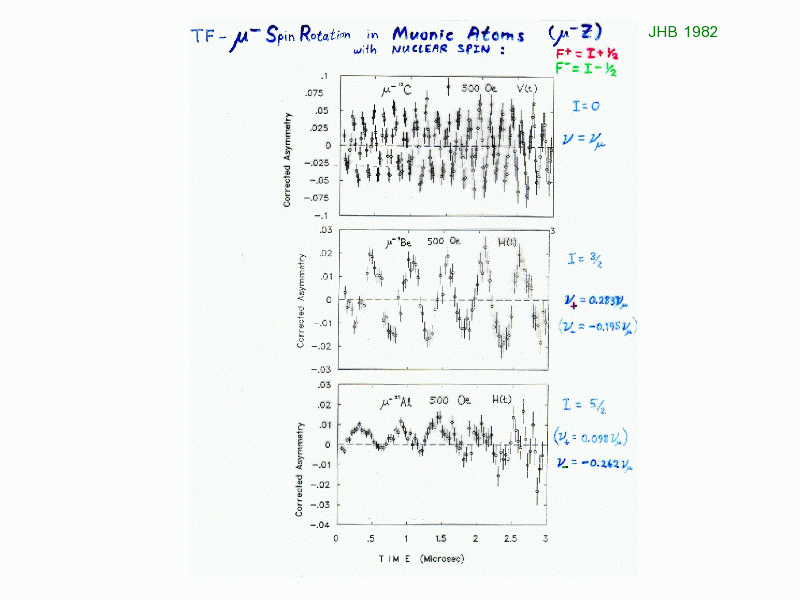 TF - μ⁻ Spin Rotation in Muonic Atoms (μ⁻Z)
with NUCLEAR SPIN :
JHB 1982
F⁺ = I + 1/2
F⁻ = I - 1/2
μ⁻ ¹²C 500 Oe V(t)
.1
.075
.05
.025
0
-.025
-.05
-.075
-.1
Corrected Asymmetry
I = 0
ν = νμ
3
μ⁻ ⁹Be 500 Oe H(t)
.03
.02
.01
0
-.01
-.02
-.03
Corrected Asymmetry
I = 3/2
ν₊ = 0.283νμ
(ν₋ = -0.195νμ)
μ⁻ ²⁷Al 500 Oe H(t)
.03
.02
.01
0
-.01
-.02
-.03
-.04
Corrected Asymmetry
I = 5/2
(ν₊ = 0.098νμ)
ν₋ = -0.262νμ
0 .5 1 1.5 2 2.5 3
TIME (Microsec)